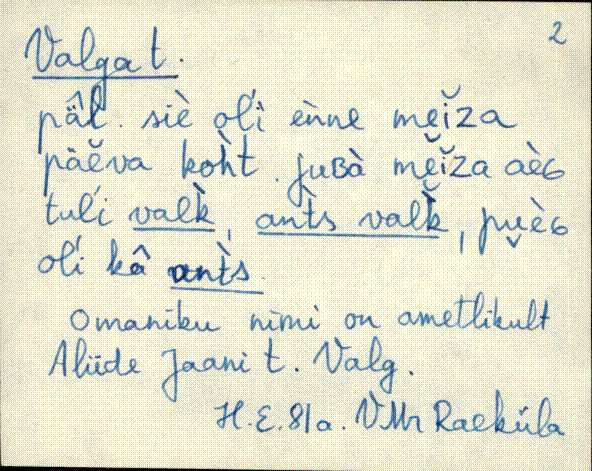 2
Valga t.
pä̂l. siè oĺi èǹne meĭ̯za
päĕva koh̀t. juʙà mĕĭ̯za aèɢ
tuĺi valk̀, ants̀ valk̆̀, pu̯èɢ
oĺi kâ ants̀.
Omaniku nimi on ametlikult
Aliide Jaani t. Valg.
H.E. 81a. VMr Raeküla